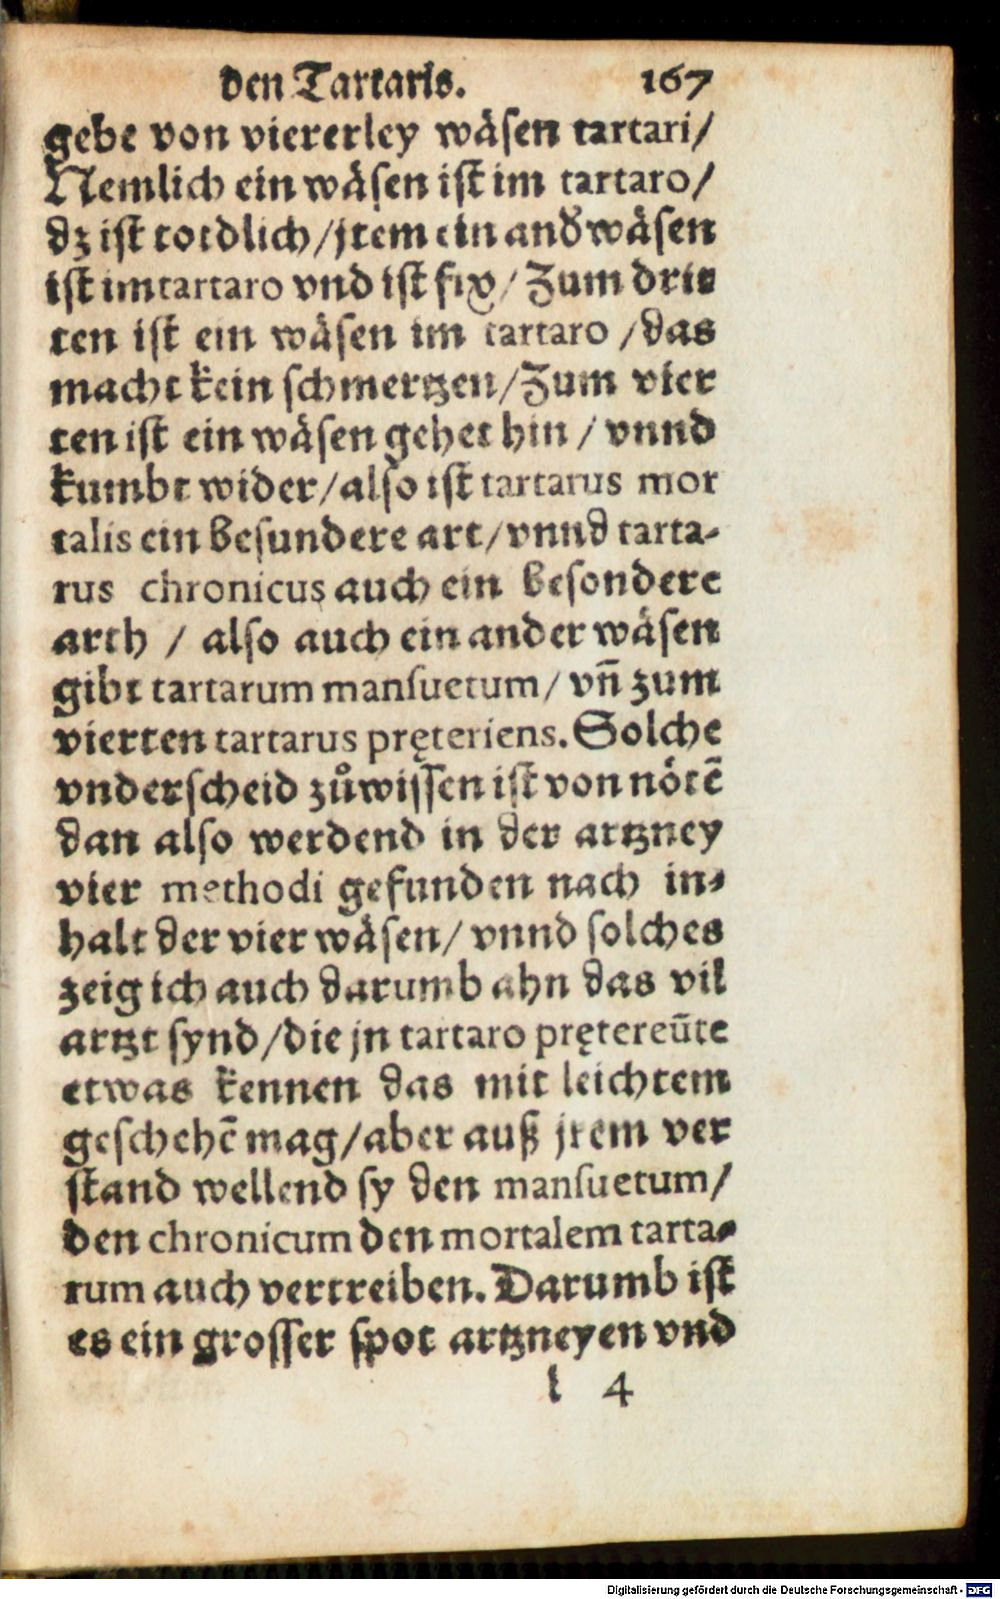 den Tartaris. 167
gebe von viererley wäsen tartari/
Nemlich ein wäsen ist im tartaro/
dz ist toedlich/jtem ein and͛wäsen
ist im tartaro vnd ist fix/Zum drit
ten ist ein wäsen im tartaro /das
macht kein schmertzen/Zum vier
ten ist ein wäsen gehet hin / vnnd
kumbt wider/also ist tartarus mor
talis ein besundere art/vnnd tarta-
rus chronicus auch ein besondere
arth / also auch ein ander wäsen
gibt tartarum mansuetum/ vñ zum
vierten tartarus pręteriens. Solche
vnderscheid zůwissen ist von nötē
dan also werdend in der artzney
vier methodi gefunden nach in-
halt der vier wäsen/ vnnd solches
zeig ich auch darumb ahn das vil
artzt synd/die jn tartaro prętereūte
etwas kennen das mit leichtem
geschehē mag/aber auß jrem ver
stand wellend sy den mansuetum/
den chronicum den mortalem tarta-
rum auch vertreiben. Darumb ist
es ein grosser spot artzneyen vnd
l 4
Digitalisierung gefördert durch die Deutsche Forschungsgemeinschaft - DFG